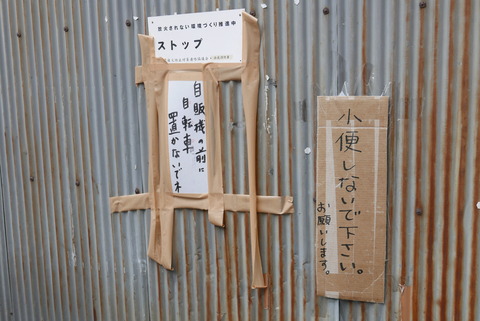 放火されない環境づくり推進中
ストップ
自販機の前に
自転車
置かないでネ
小便しないで下さい。
お願いします。